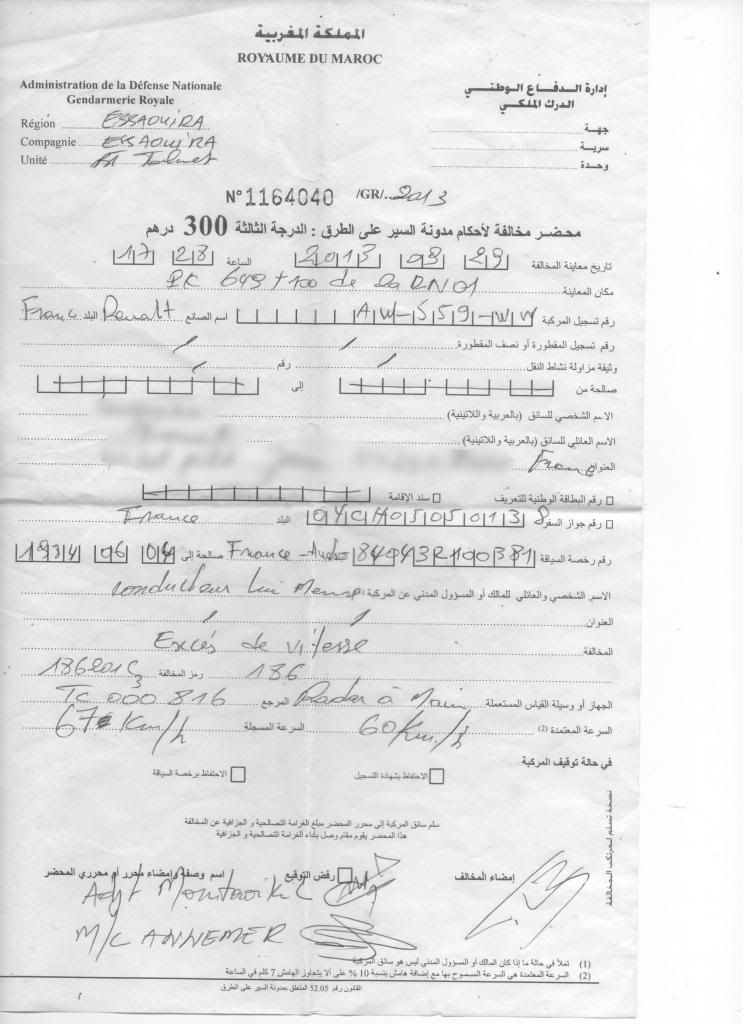 المملكة المغربية
ROYAUME DU MAROC
Administration de la Défense Nationale
Gendarmerie Royale
إدارة الـدفـاع الـوطنـي
الدرك الملكـي
Région ESSAOUIRA
Compagnie ESSAOUIRA
Unité
جهـة
سريـة
وحدة
N° 1164040 /GR/. 2013
محضـر مخالفة لأحكام مدونة السير على الطرق : الدرجة الثالثة 300 درهم
تاريخ معاينة المخالفة 29 08 2013 الساعة 17 28
مكان المعاينة PK 649+100 de la RN01
رقم تسجيل المركبة AW-559-WW اسم الصانع Renalt البلد France
رقم تسجيل المقطورة أو نصف المقطورة
وثيقة مزاولة نشاط النقل رقم
صالحة من إلى
الاسم الشخصي للسائق (بالعربية واللاتينية)
الاسم العائلي للسائق (بالعربية واللاتينية)
العنوان France
رقم البطاقة الوطنية للتعريف سند الإقامة
رقم جواز السفر البلد France
رقم رخصة السياقة صالحة إلى 1994 06 04
الاسم الشخصي والعائلي للمالك أو المسؤول المدني عن المركبة (1) conducteur lui meme
العنوان
المخالفة Excés de vitesse
186 رمز المخالفة
الجهاز أو وسيلة القياس المستعملة Radar à Main المرجع TC 000 816
السرعة المعتمدة (2) 60 Km/h السرعة المسجلة 67 Km/h
في حالة توقيف المركبة
الاحتفاظ بشهادة التسجيل الاحتفاظ برخصة السياقة
سلم سائق المركبة إلى محرر المحضر مبلغ الغرامة التصالحية و الجزافية عن المخالفة
هذا المحضر يقوم مقام وصل بأداء الغرامة التصالحية و الجزافية
نسخة تسلم لمرتكب المخالفة
إمضاء المخالف رفض التوقيع اسم وصفة وإمضاء محرر أو محرري المحضر
Adjt
M/C ANNEMER
(1) تملأ في حالة ما إذا كان المالك أو المسؤول المدني ليس هو سائق المركبة
(2) السرعة المعتمدة هي السرعة المسموح بها مع إضافة هامش بنسبة 10 % على ألا يتجاوز الهامش 7 كلم في الساعة
القانون رقم 52.05 المتعلق بمدونة السير على الطرق